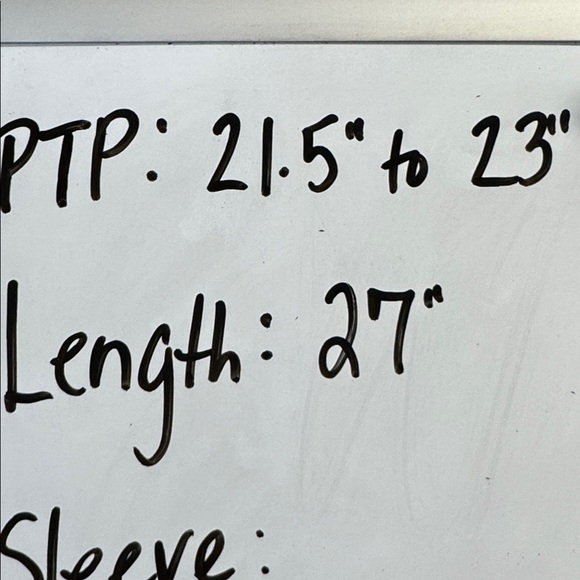 PTP: 21.5" to 23"
Length: 27"
Sleeve: